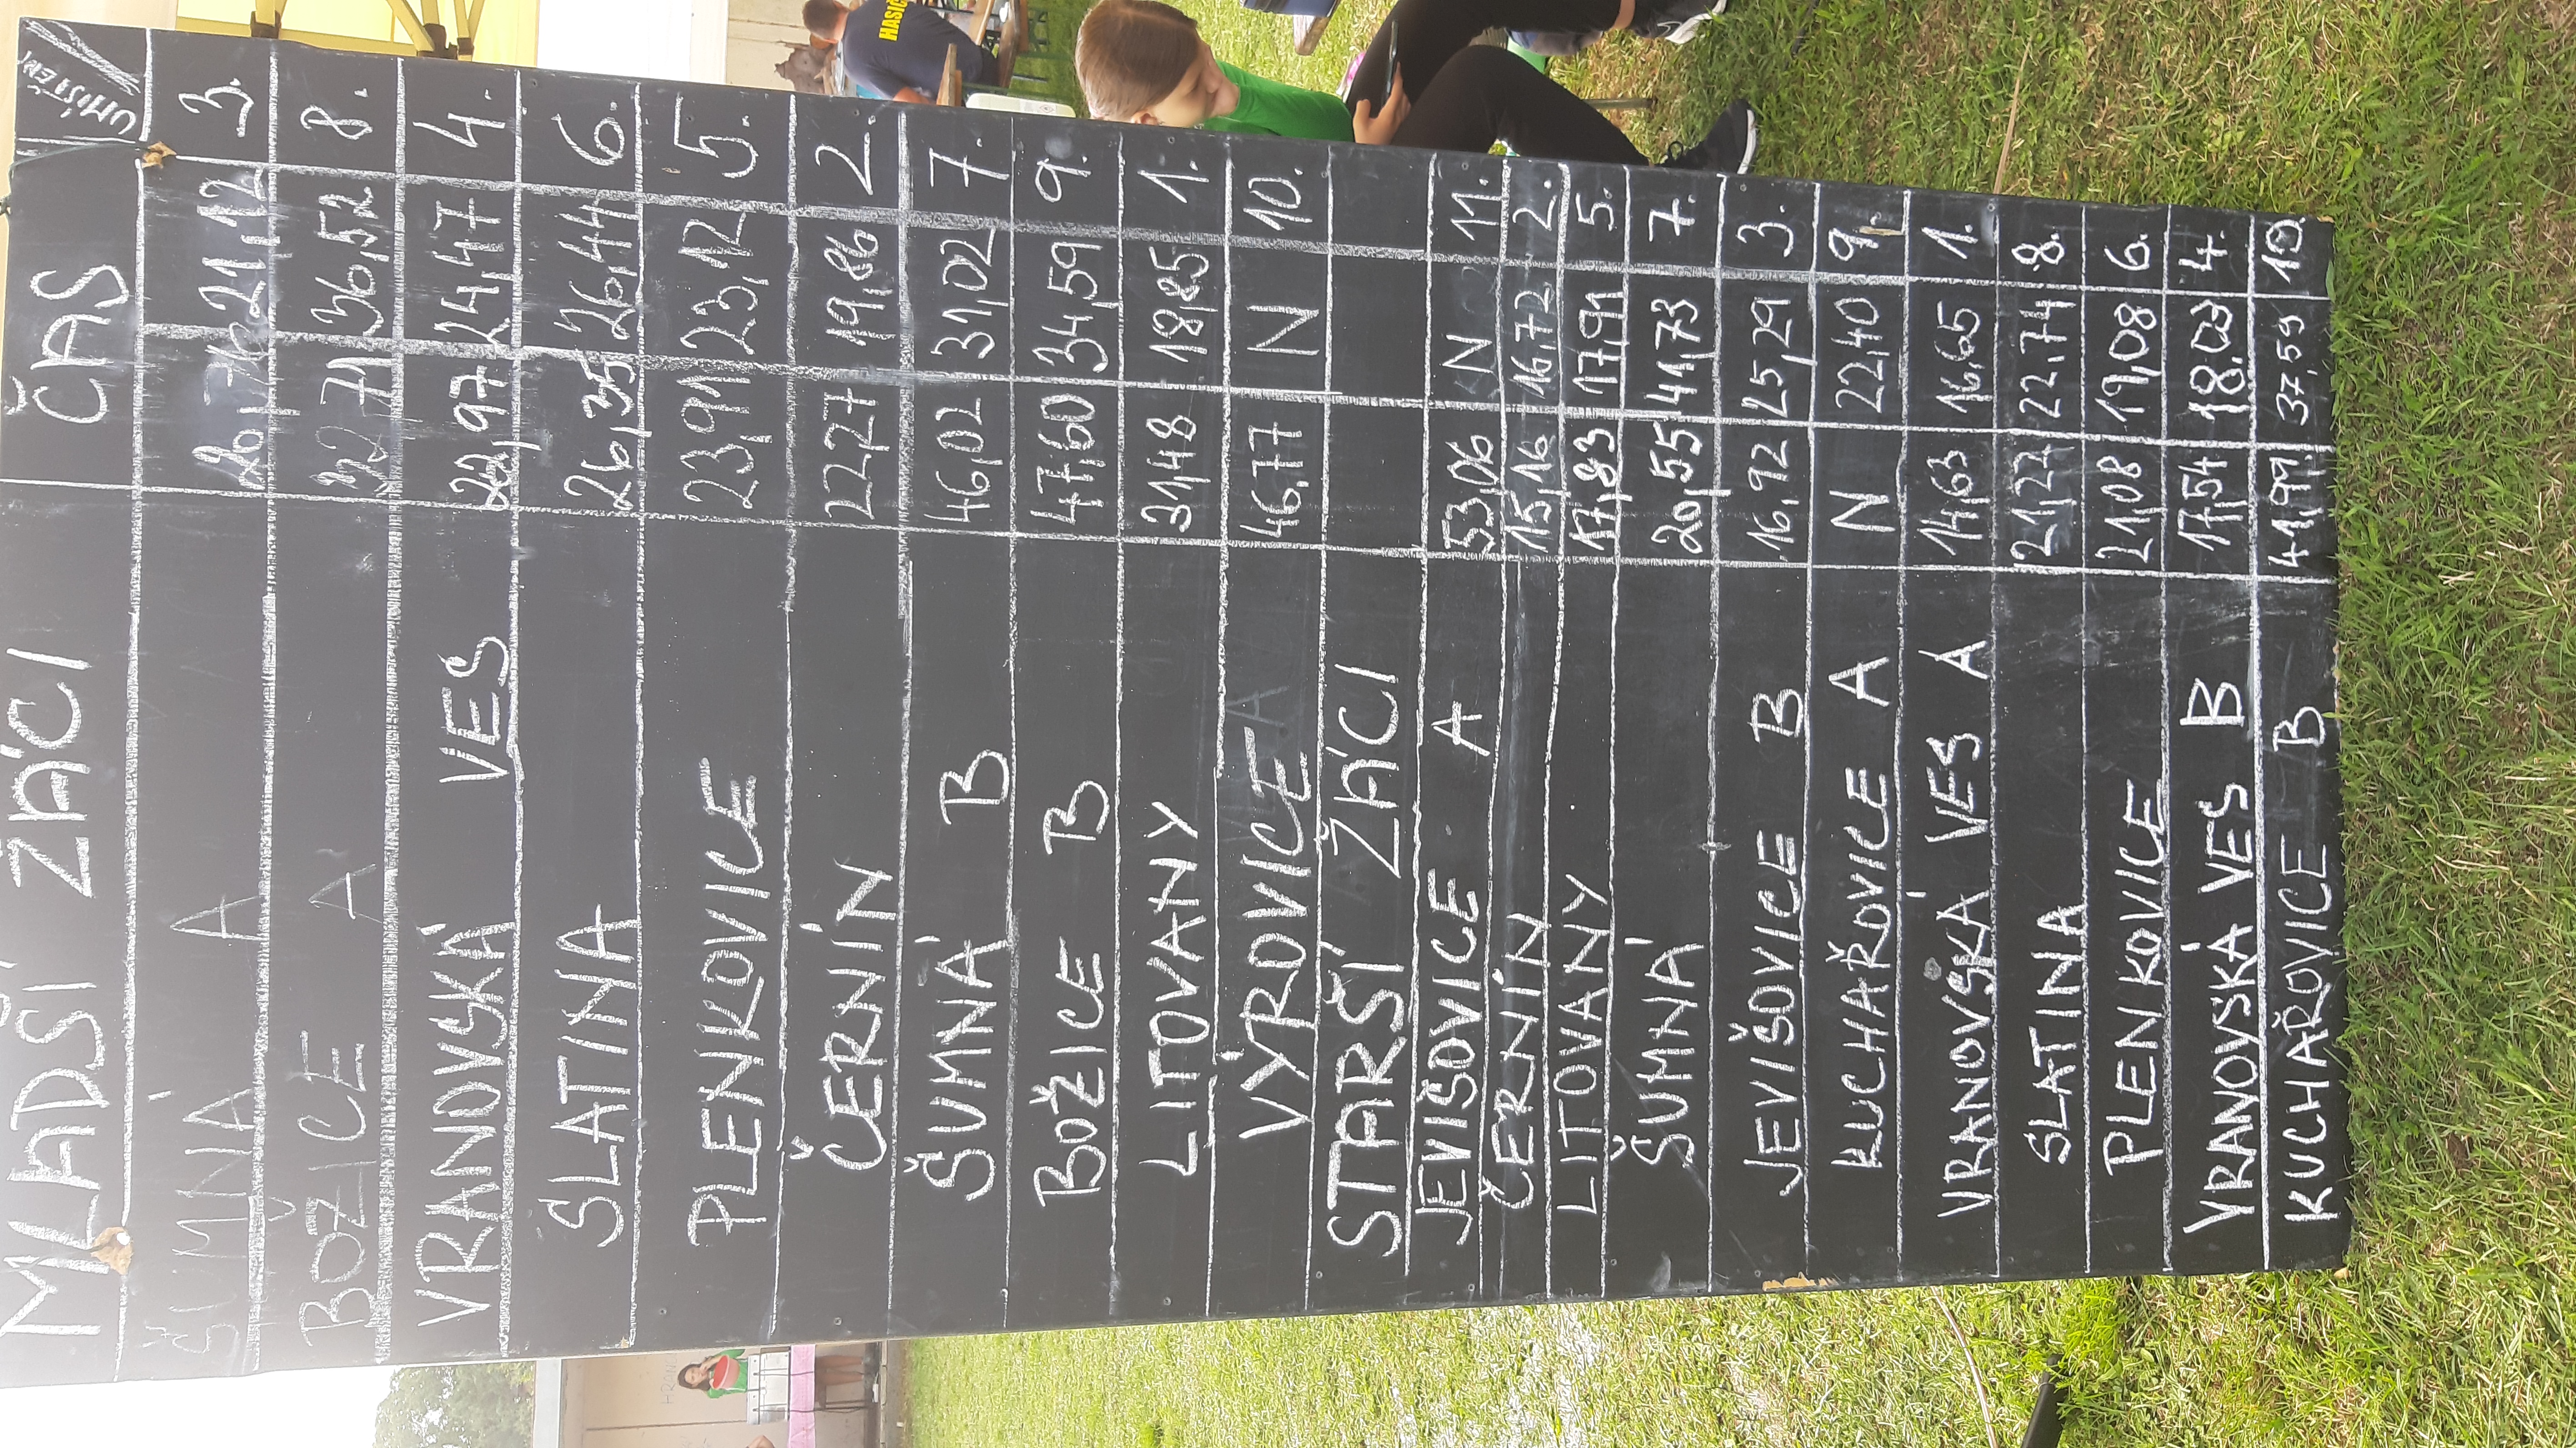 MLADŠÍ ŽÁCI ČAS UMÍSTĚNÍ
ŠUMNÁ A 21,12 3.
BOŽICE A 36,52 8.
VRANOVSKÁ VES 22,97 24,47 4.
SLATINA 26,35 26,44 6.
PLENKOVICE 23,91 23,12 5.
ČERNÍN 22,27 19,86 2.
ŠUMNÁ B 46,02 31,02 7.
BOŽICE B 47,60 34,59 9.
LITOVANY 31,48 18,85 1.
VÝROVICE 46,77 N 10.
STARŠÍ ŽÁCI
JEVIŠOVICE A 53,06 N 11.
ČERNÍN 15,16 16,72 2.
LITOVANY 17,83 17,91 5.
ŠUMNÁ 20,55 41,73 7.
JEVIŠOVICE B 16,92 25,29 3.
KUCHAŘOVICE A N 22,40 9.
VRANOVSKÁ VES A 14,63 16,65 1.
SLATINA 21,27 22,74 8.
PLENKOVICE 21,08 19,08 6.
VRANOVSKÁ VES B 17,54 18,03 4.
KUCHAŘOVICE B 41,99 37,59 10.
HASIČ